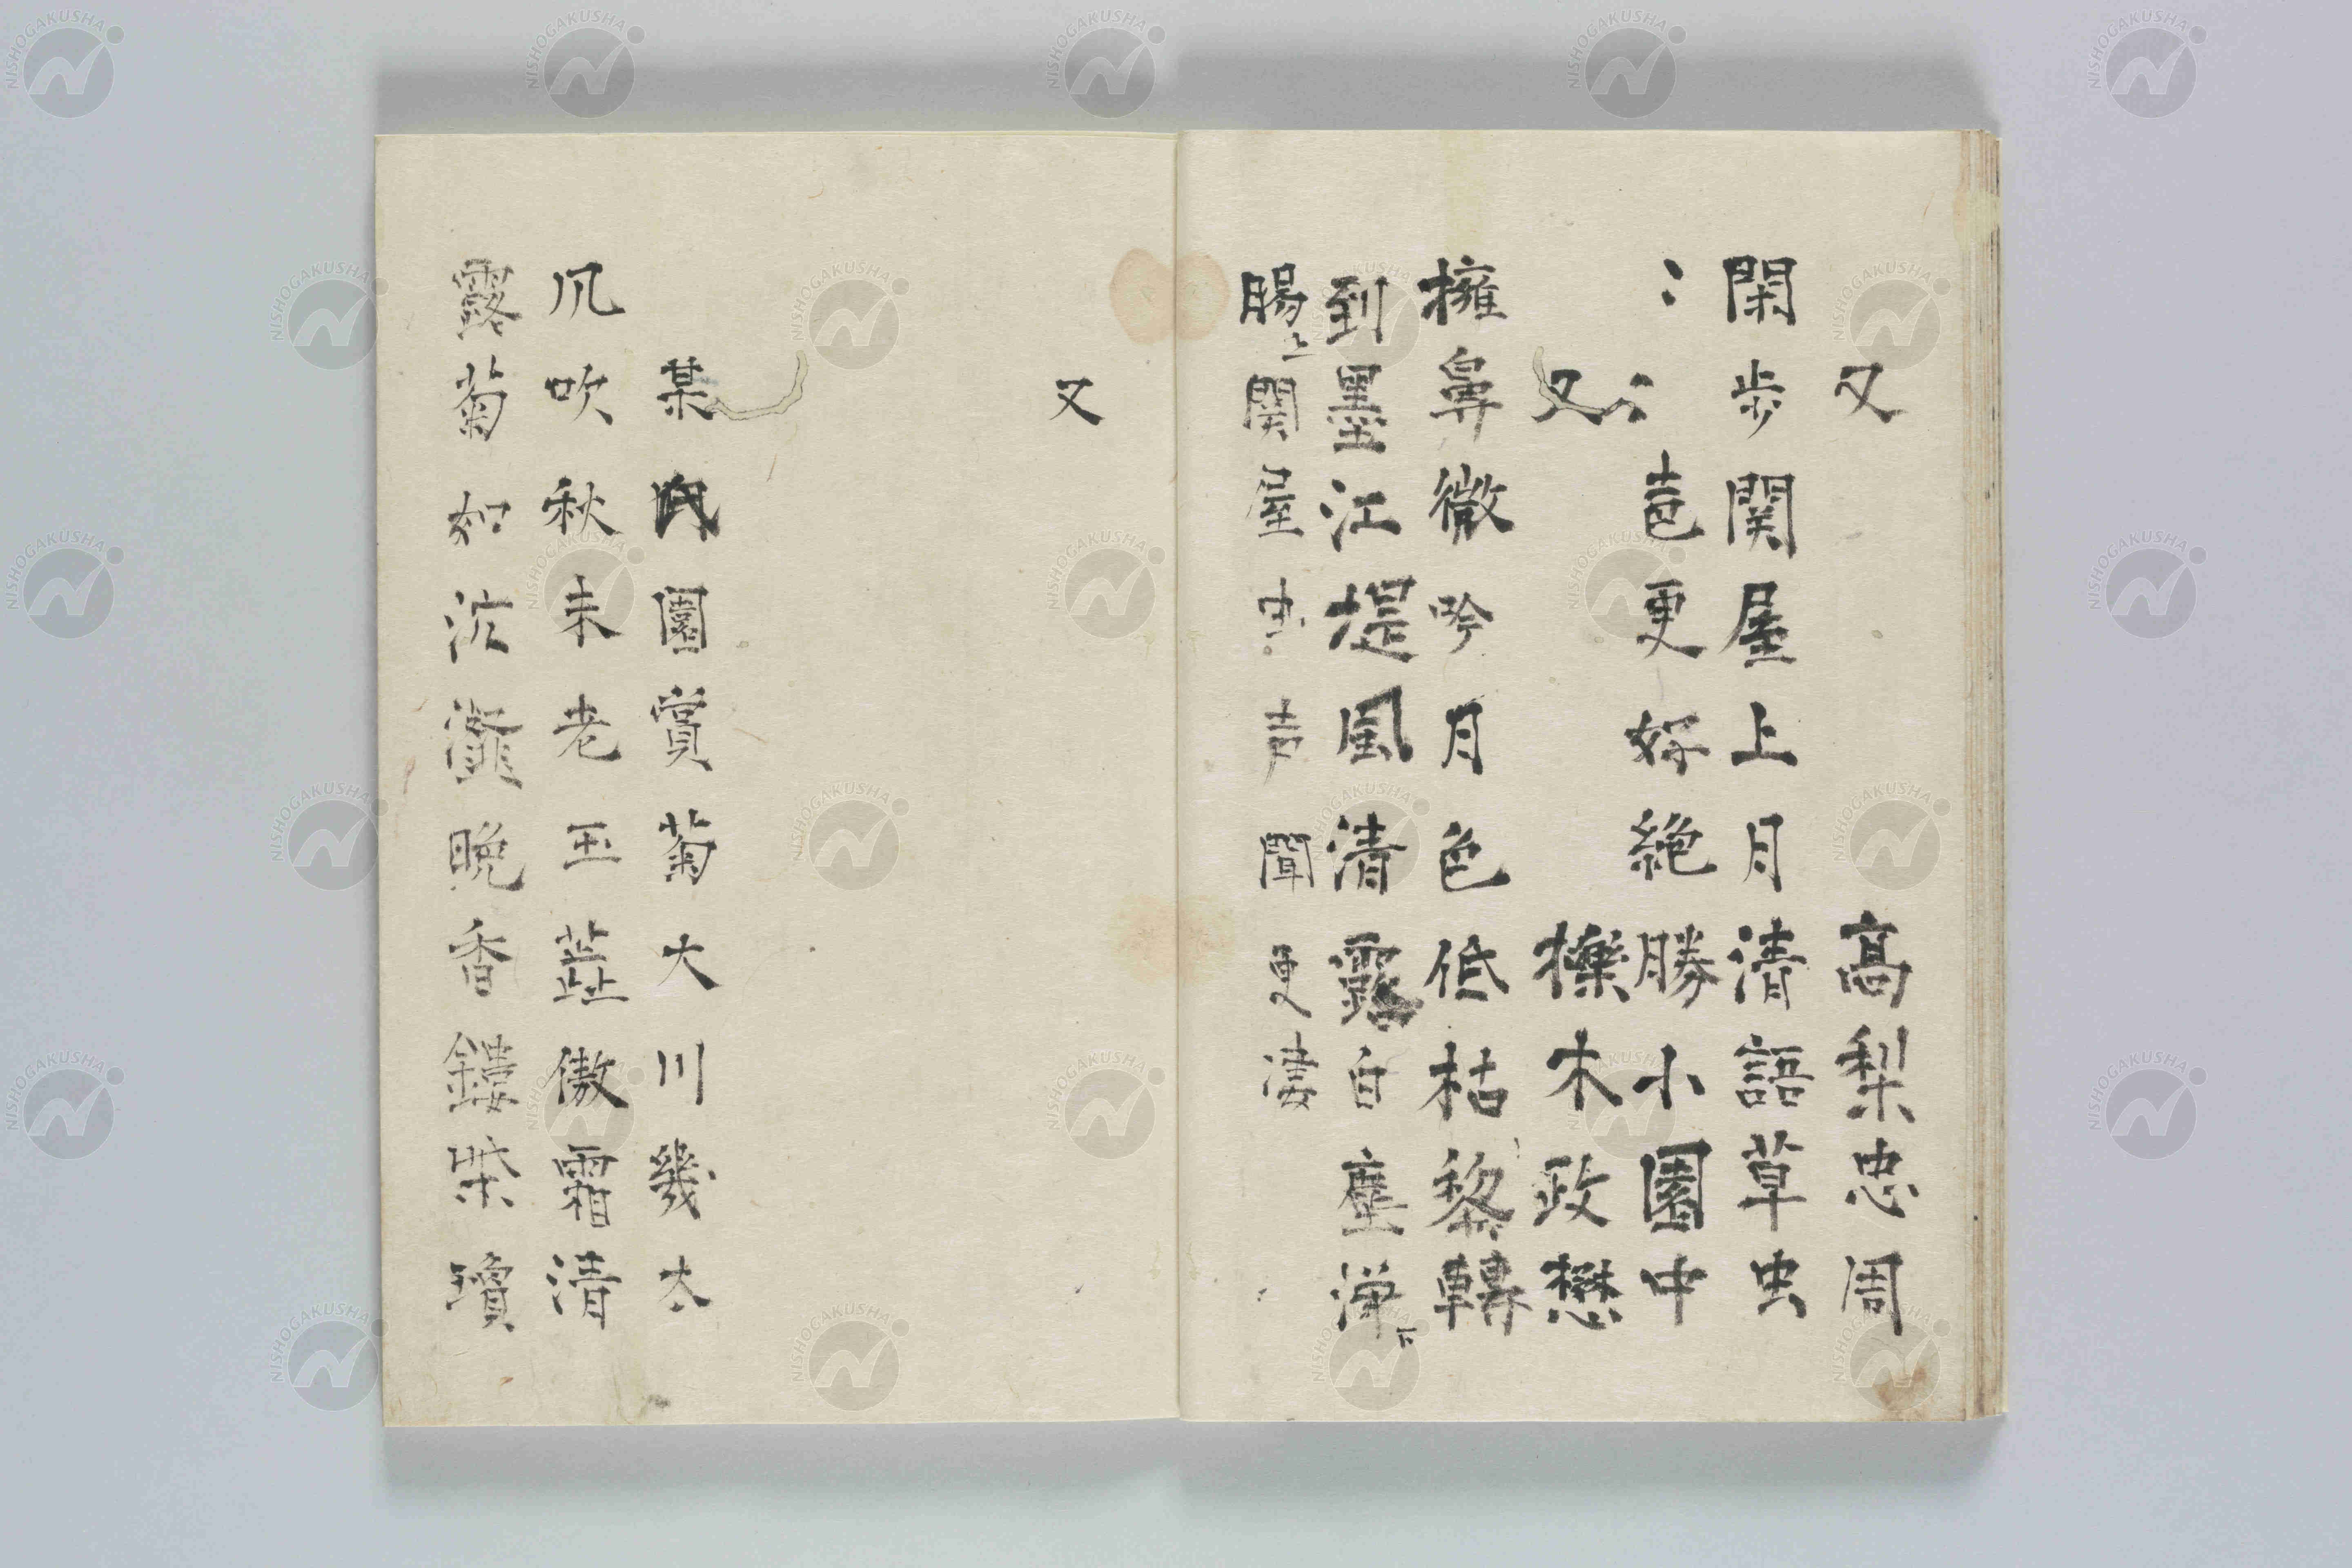 又 高梨忠周
閑歩関屋上月清語草虫
〻〻声更好絶勝小園中
又 櫟木政懋
擁鼻微吟月色低枯黎轉
到墨江堤風清露白塵渾下
腸上関屋虫〻声聞更凄
又
某氏園賞菊大川幾太
凨吹秋未老玉蕋傲霜清
露菊如沆瀣晩香鏤紫瓊
NISHOGAKUSHA